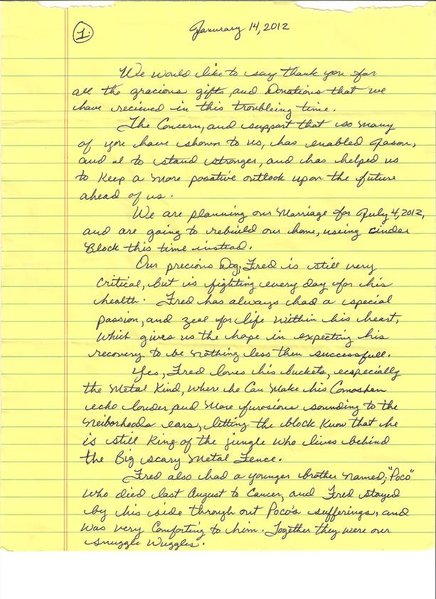 1.
January 14, 2012
We would like to say thank you for
all the gracious gifts, and Donations that we
have recieved in this troubleing time.
The Concern, and support that so many
of you have shown to us, has enabled Jason,
and I to stand stronger, and has helped us
to Keep a more posative outlook upon the future
ahead of us.
We are planning our Marriage for July 4, 2012,
and are going to rebuild our home, using cinder
Block this time instead.
Our precious Dog, Fred is still very
Critical, but is fighting every day for his
health. Fred has always had a special
passion, and zeal for life within his heart,
Which gives us the hope in expecting his
recovery to be nothing less then successfull.
Yes, Fred loves his buckets, especially
the Metal Kind, Where he Can Make his
echo louder and More sounding to the
Neiborhoods ears, letting the block Know that he
is still King of the jungle who lives behind
the Big scary Metal Fence.
Fred also had a younger brother named; "Poco"
Who died last August to Cancer, and Fred stayed
by his side through out Poco's sufferings, and
was very Comforting to him. Together they were our
snuggle Wuggles.